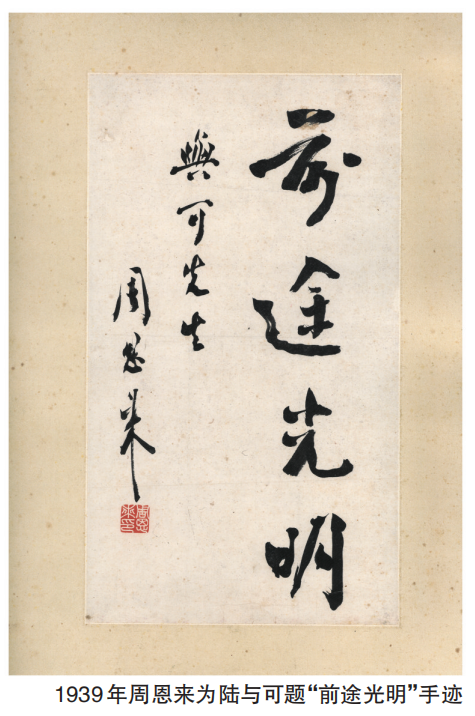 前途光明
與可先生
周恩来
周恩來印
1939年周恩来为陆与可题“前途光明”手迹